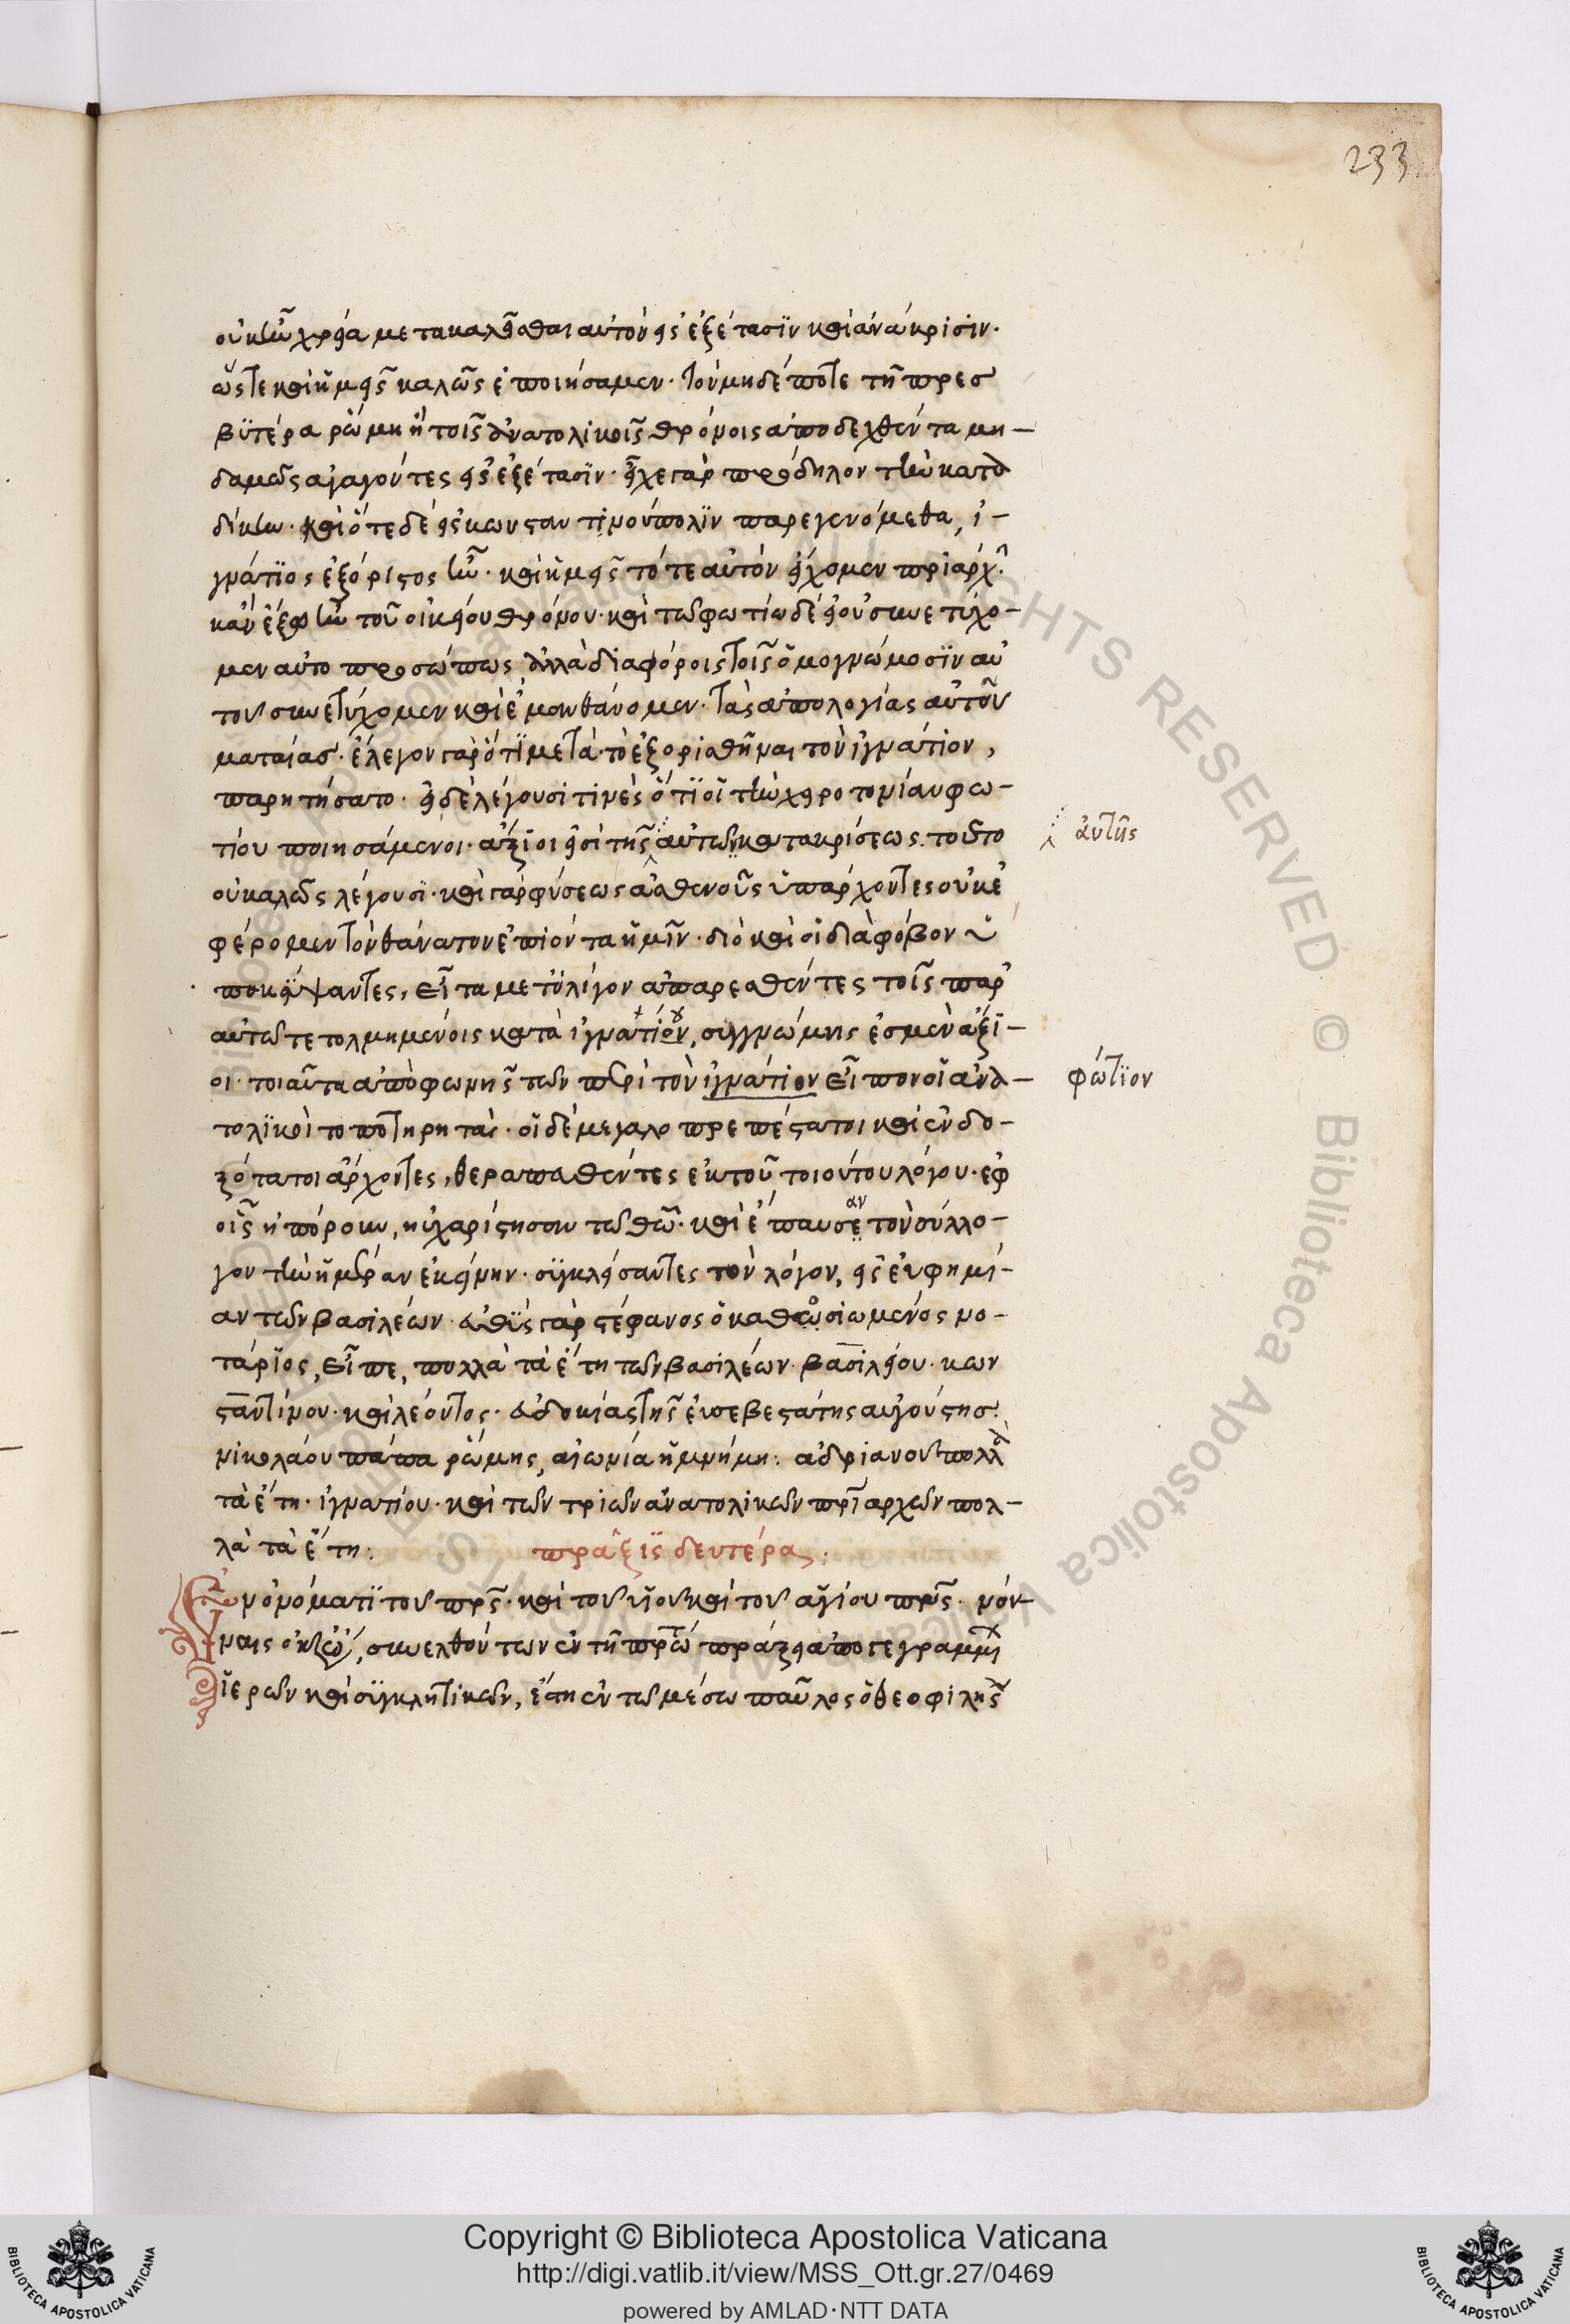 233
οὐκ ἦν χρεία μετακαλεῖσθαι αὐτὸν εἰς ἐξέτασϊν καὶ ἀνάκρισιν.
ὥστε καὶ ἡμεῖς καλῶς ἐποιήσαμεν· τὸν μηδέποτε τῆ πρεσ
βϋτέρα ῥώμη ἢ τοῖς ἀνατολικοῖς θρόνοις ἀποδεχθέντα μη-
δαμῶς ἀγαγόντες εἰς ἐξέτασϊν· εἶχε γὰρ πρόδηλον τὴν κατα
δίκην· καὶ ὅτε δὲ εἰς κωνσταντίνούπολϊν παρεγενόμεθα, ἰ-
γνάτϊος ἐξόριστος ἦν· καὶ ἡμεῖς τότε αὐτὸν εἴχομεν πριάρχ
κἂν ἔξω ἦν τοῦ οἰκείου θρόνου· καὶ τῶ φωτίω δὲ εἰ οὐ συνετύχο-
μεν αὐτοπροσώπως, ἀλλὰ διαφόροις τοῖς ὁμογνώμοσϊν αὐ
τοῦ συνετύχομεν καὶ ἐμανθάνομεν· τὰς ἀπολογίας αὐτῶν
ματαίας· ἔλεγον γὰρ ὅτϊ μετὰ τὸ ἐξορισθῆναι τὸν ἰγνάτιον,
παρητήσατο· εἰ δὲ λέγουσί τινὲς ὅτϊ οἱ τὴν χειροτονίαν φω-
τίου ποιησάμενοι· ἄξϊοι εἰσὶ τῆς αὐτῶν κατακρίσεως. τοῦτο
ἀυτῆς
οὐ καλῶς λέγουσϊ· καὶ γὰρ φύσεως ἀσθενοῦς ὑπάρχοντες οὐκ ἐ
φέρομεν τὸν θάνατον ἐπϊόντα ἡμῖν· διὸ καὶ οἱ διὰ φόβον ὑ
ποκύψαντες, εἶτα μετ' ὀλίγον ἀπαρεσθέντες τοῖς παρ'
αὐτῶ τετολμημένοις κατὰ ἰγνατίον, συγγνώμης ἐσμὲν ἄξϊ-
οι· τοιαῦτα ἀπὸ φωνῆς τῶν περὶ τὸν ἰγνάτιον εἶπον οἱ ἀνα-
φώτϊον
τολϊκοὶ τοποτηρηταὶ· οἱ δὲ μεγαλοπρεπέστατοι καὶ ἐνδο-
ξότατοι ἄρχοντες, θεραπευθέντες ἐκ τοῦ τοιούτου λόγου· ἐφ
οἷς ἠπόρουν, ηὐχαρίστησαν τῶ θῶ· καὶ ἔπαυσε αν τὸν σύλλο-
γον τὴν ἡμέραν ἐκείνην· σϋγκλείσαντες τὸν λόγον, εἰς ἐυφημί-
αν τῶν βασιλέων· εὐθῢς γὰρ στέφανος ὁ καθωσιωμένος νο-
τάρϊος, εἶπε, πολλὰ τὰ ἔτη τῶν βασιλέων· βασιλείου· κων
σταντίνου· καὶ λέοντος· εὐδοκίας τῆς ἐυσεβεστάτης αὐγούστησ·
νικολάου πάπα ῥώμης, αἰωνία ἡ μνήμη: ἀδριανοῦ πολλὰ
τὰ ἔτη· ἰγνατίου· καὶ τῶν τριῶν ἀνατολικῶν πριαρχῶν πολ-
λὰ τὰ ἔτη: πρᾶξϊς δευτέρα:
Ἐν ὀνόματϊ τοῦ πρς· καὶ τοῦ υἱοῦ καὶ τοῦ ἁγίου πνς· νόν-
ναις ὀκτω, συνελθόντων ἐν τῆ πρτω πράξει ἀπογεγραμμν
ἱερῶν καὶ σϋγκλητϊκῶν, ἔστη ἐν τῶ μέσω παῦλος ὁ θεοφιλὴς
Copyright © Biblioteca Apostolica Vaticana
http://digi.vatlib.it/view/MSS_Ott.gr.27/0469
powered by AMLAD·NTT DATA